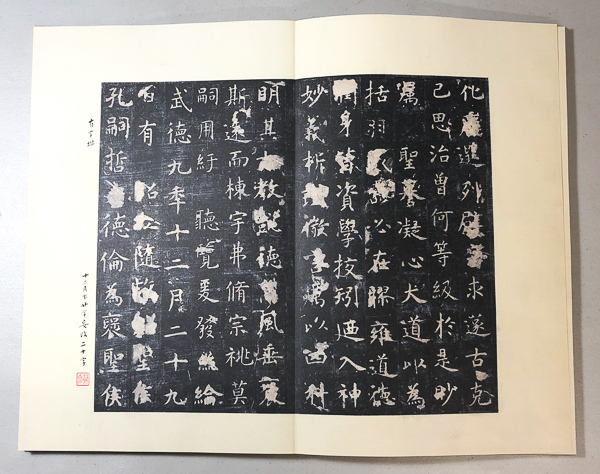 化遷列辟求遂古克
己思治曾何等級於是眇
屬聖凝心大道以為
括羽必在膠雍道德
潤身皆資學校矧迺入神
妙義析微言以四科
明其教懿德風垂裏
斯遠而棟宇弗脩宗祧莫
嗣用紆聽覽爰發絲綸
武德九年十二月二十九
日有詔立隨故聖侯
孔嗣哲德倫為褒聖侯